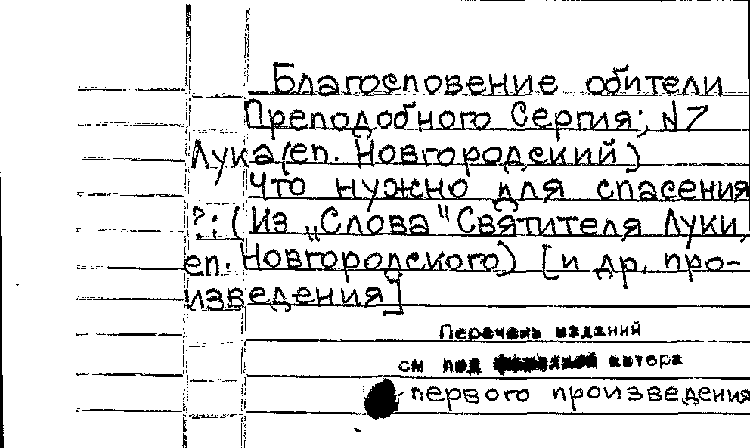 Благословение обители
Преподобного Сергия; №7
Лука (еп. Новгородский)
Что нужно для спасения
?: (Из „Слова" Святителя Луки,
еп. Новгородского) [и др. про-
изведения]
Перечень изданий
см под автора
первого произведения